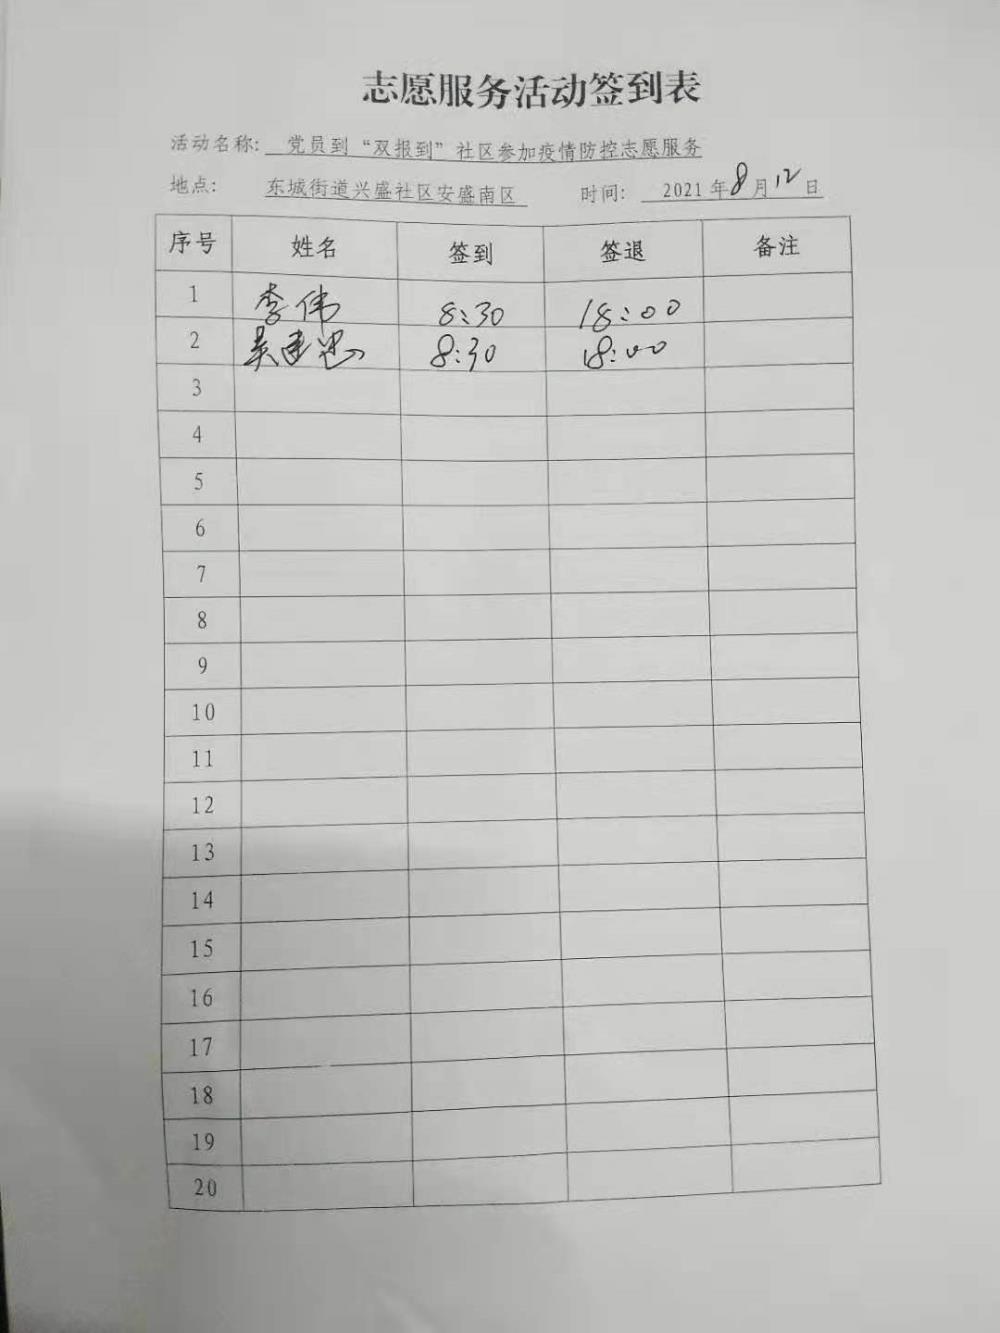 志愿服务活动签到表
活动名称: 党员到“双报到”社区参加疫情防控志愿服务
地点: 东城街道兴盛社区安盛南区 时间: 2021年8月12日
序号 姓名 签到 签退 备注
1 李伟 8:30 18:00
2 吴建忠 8:30 18:00
3
4
5
6
7
8
9
10
11
12
13
14
15
16
17
18
19
20